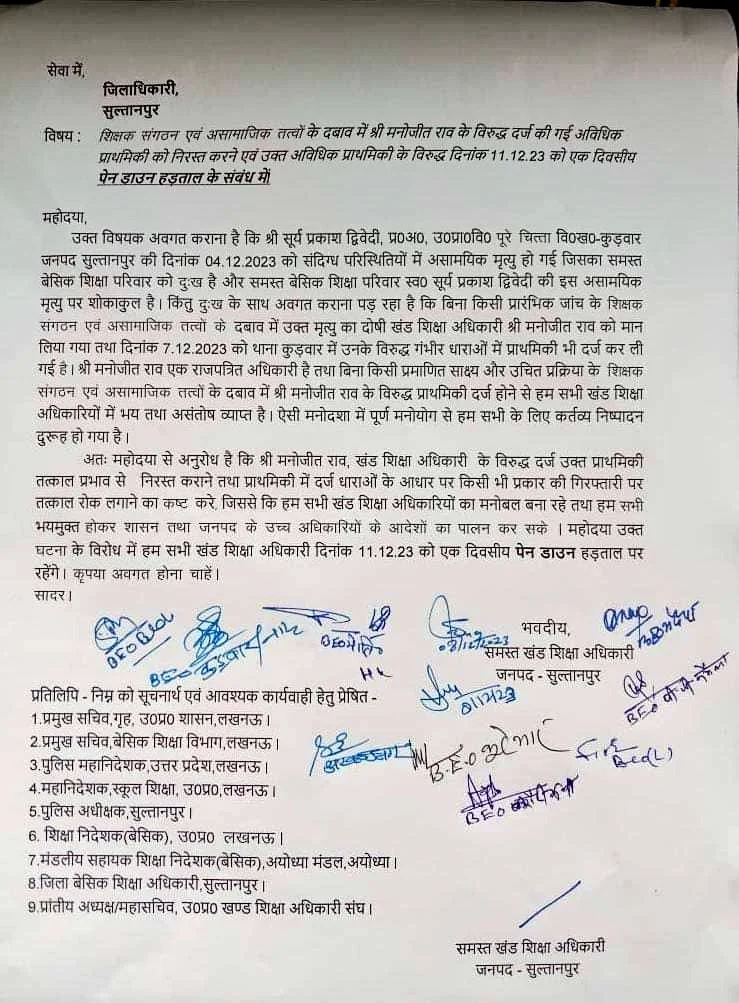 सेवा में,
जिलाधिकारी,
सुल्तानपुर
विषय : शिक्षक संगठन एवं असामाजिक तत्वों के दबाव में श्री मनोजीत राव के विरुद्ध दर्ज की गई अविधिक
प्राथमिकी को निरस्त करने एवं उक्त अविधिक प्राथमिकी के विरुद्ध दिनांक 11.12.23 को एक दिवसीय
पेन डाउन हड़ताल के संबंध में|
महोदया,
उक्त विषयक अवगत कराना है कि श्री सूर्य प्रकाश द्विवेदी, प्र०अ०, उ०प्रा०वि० पूरे चित्ता वि०ख०-कुड़वार
जनपद सुल्तानपुर की दिनांक 04.12.2023 को संदिग्ध परिस्थितियों में असामयिक मृत्यु हो गई जिसका समस्त
बेसिक शिक्षा परिवार को दुःख है और समस्त बेसिक शिक्षा परिवार स्व० सूर्य प्रकाश द्विवेदी की इस असामयिक
मृत्यु पर शोकाकुल है। किंतु दुःख के साथ अवगत कराना पड़ रहा है कि बिना किसी प्रारंभिक जांच के शिक्षक
संगठन एवं असामाजिक तत्वों के दबाव में उक्त मृत्यु का दोषी खंड शिक्षा अधिकारी श्री मनोजीत राव को मान
लिया गया तथा दिनांक 7.12.2023 को थाना कुड़वार में उनके विरुद्ध गंभीर धाराओं में प्राथमिकी भी दर्ज कर ली
गई है। श्री मनोजीत राव एक राजपत्रित अधिकारी है तथा बिना किसी प्रमाणित साक्ष्य और उचित प्रक्रिया के शिक्षक
संगठन एवं असामाजिक तत्वों के दबाव में श्री मनोजीत राव के विरुद्ध प्राथमिकी दर्ज होने से हम सभी खंड शिक्षा
अधिकारियों में भय तथा असंतोष व्याप्त है। ऐसी मनोदशा में पूर्ण मनोयोग से हम सभी के लिए कर्तव्य निष्पादन
दुरूह हो गया है।
अतः महोदया से अनुरोध है कि श्री मनोजीत राव, खंड शिक्षा अधिकारी के विरुद्ध दर्ज उक्त प्राथमिकी
तत्काल प्रभाव से निरस्त कराने तथा प्राथमिकी में दर्ज धाराओं के आधार पर किसी भी प्रकार की गिरफ्तारी पर
तत्काल रोक लगाने का कष्ट करे, जिससे कि हम सभी खंड शिक्षा अधिकारियों का मनोबल बना रहे तथा हम सभी
भयमुक्त होकर शासन तथा जनपद के उच्च अधिकारियों के आदेशों का पालन कर सके । महोदया उक्त
घटना के विरोध में हम सभी खंड शिक्षा अधिकारी दिनांक 11.12.23 को एक दिवसीय पेन डाउन हड़ताल पर
रहेंगे। कृपया अवगत होना चाहें।
सादर।
BEO
BEO कुड़वार
BEO
08/12/2023
भवदीय,
समस्त खंड शिक्षा अधिकारी
जनपद - सुल्तानपुर
BEO
B.E.O
BEO
प्रतिलिपि - निम्न को सूचनार्थ एवं आवश्यक कार्यवाही हेतु प्रेषित -
1.प्रमुख सचिव,गृह, उ०प्र० शासन,लखनऊ।
2.प्रमुख सचिव,बेसिक शिक्षा विभाग,लखनऊ।
3.पुलिस महानिदेशक,उत्तर प्रदेश,लखनऊ।
4.महानिदेशक,स्कूल शिक्षा, उ०प्र०,लखनऊ।
5.पुलिस अधीक्षक,सुल्तानपुर।
6. शिक्षा निदेशक(बेसिक), उ०प्र० लखनऊ।
7.मंडलीय सहायक शिक्षा निदेशक(बेसिक),अयोध्या मंडल,अयोध्या।
8.जिला बेसिक शिक्षा अधिकारी,सुल्तानपुर।
9.प्रांतीय अध्यक्ष/महासचिव, उ०प्र० खण्ड शिक्षा अधिकारी संघ।
समस्त खंड शिक्षा अधिकारी
जनपद - सुल्तानपुर